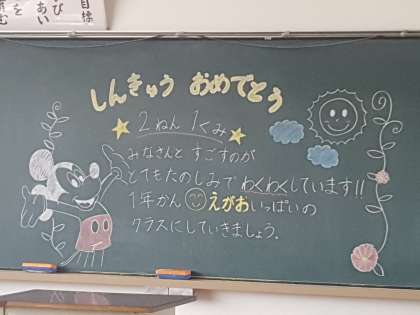 目標
しんきゅう おめでとう
2ねん 1くみ
みなさんと すごすのが
とてもたのしみで わくわくしています!!
1年かん えがおいっぱいの
クラスにしていきましょう。